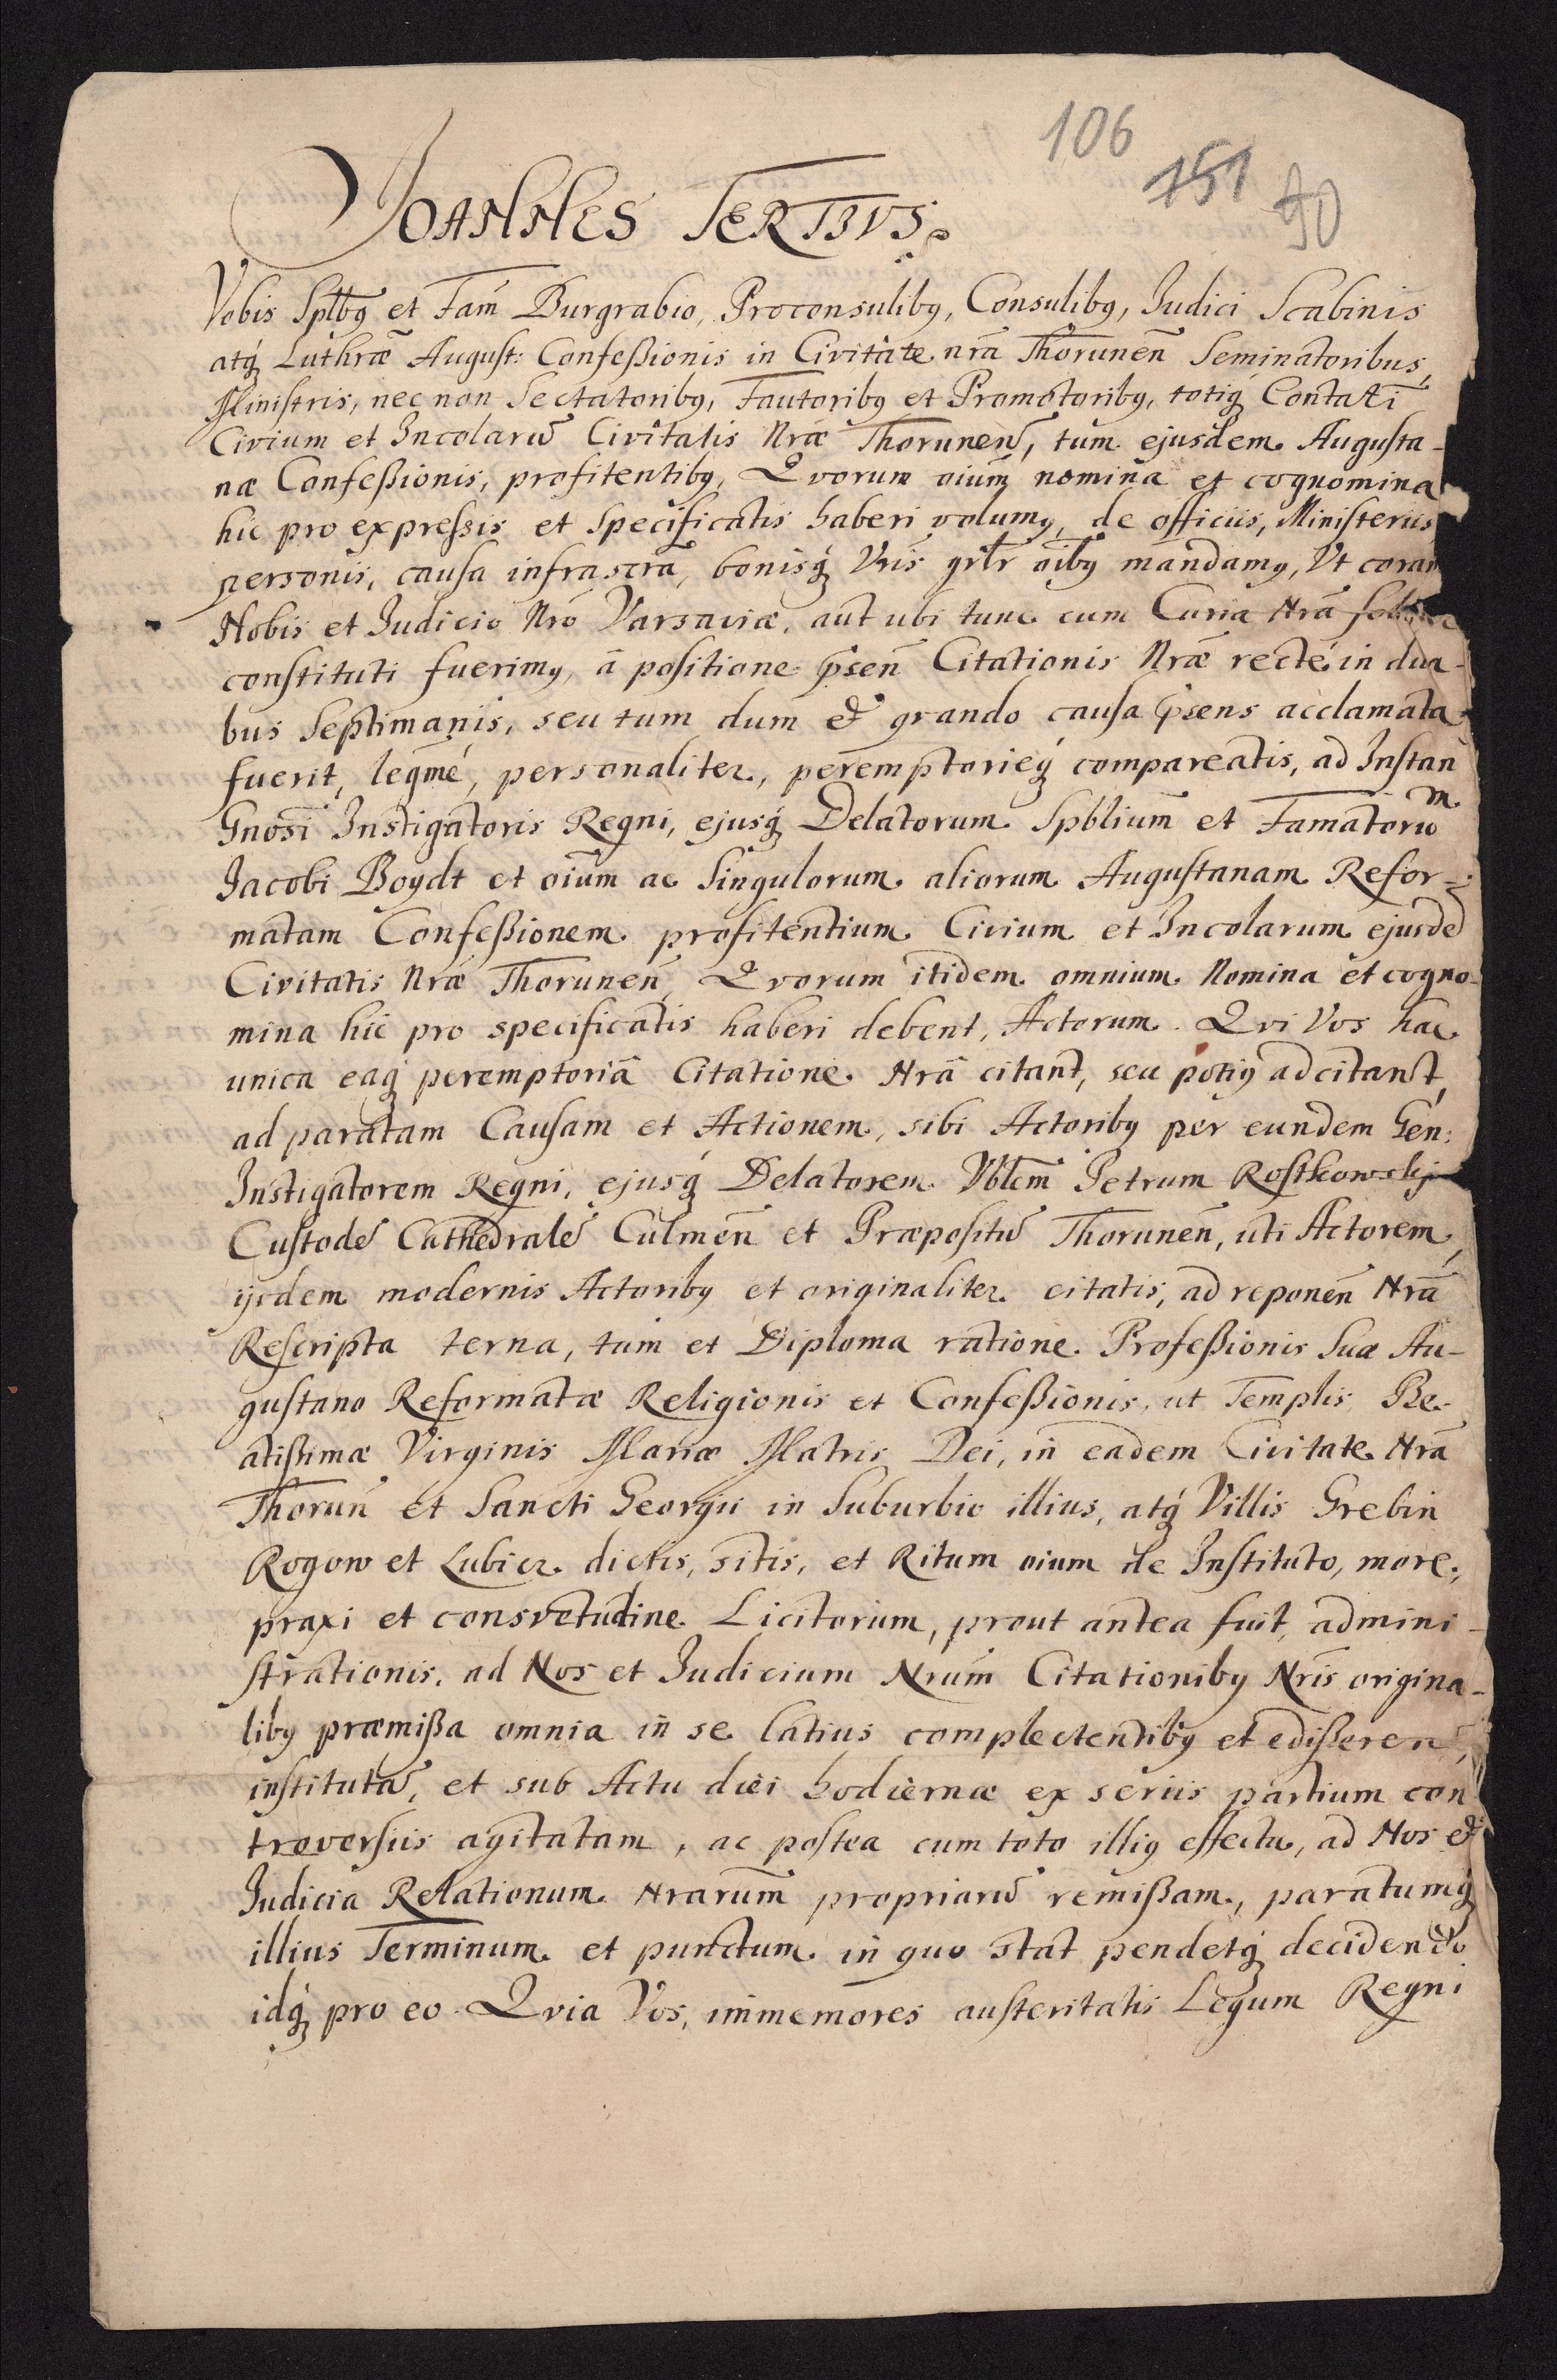 106
151
90
JOANNES TERTIVS
Vobis Splb9 et Fam̃ Burgrabio, Proconsulib9, Consulib9, Judici Scabinis
atq́ Luthræ̃ August: Confeßionis in Civitate nr̃a Thorunen̄ Seminatoribus,
Ministris, nec non Sectatorib9, Fautorib9 et Promotorib9, totiq́
Civium et Incolarũ Civitatis Nræ Thorunen̄, tum ejusdem Augusta-
næ Confeßionis, profitentib9, Qvorum oium̄ nomina et cognomina
hic pro expreſsis et Specificatis haberi volum9, de officiis, Ministeriis
personis, causa infrascrã, bonisq́ Vris grlr oib9 mandam9, Ut coram
Nobis et Judicio Nrõ Varsaviæ, aut ubi tunc cum Curia Nrã
constituti fuerim9, ā positione p̃sen̄ Citationis Nræ̃ recté in dua-
bus Septimanis, seu tum dum & qvando causa p̃sens acclamata
fuerit, legm̃é, personaliter, peremptorieq́ compareatis, ad Instañ
Gnosi Instigatoris Regni, ejusq́ Delatorum Spblium̄ et Famatorũm
Jacobi Boydt et oium̄ ac Singulorum aliorum Augustanam Refor-
matam Confeßionem profitentium Civium et Incolarum ejusdẽ
Civitatis Nræ Thorunen̄, Qvorum itidem omnium Nomina et cogno-
mina hic pro specificatis haberi debent, Actorum. Qvi Vos hac
unica eaq́ peremptoriâ Citatione Nrâ citant, seu poti9 adcitant,
ad paratam Causam et Actionem, sibi Actorib9 per eundem Gen̄:
Instigatorem Regni, ejusq́ Delatorem Vblem̃ Petrum Rostkowskj
Custodẽ Cathedralẽ Culmen̄ et Præpositũ Thorunen̄, uti Actorem,
ijsdem modernis Actorib9 et originaliter citatis, ad reponen̄ Nrã
Rescripta terna, tum et Diploma ratione Profeßionis Suæ Au-
gustano Reformatæ Religionis et Confeßionis, ut Templis Be-
atißimæ Virginis Mariæ Matris Dei, in eadem Civitate Nrã
Thorun̄ et Sancti Georgii in Suburbio illius, atq́ Villis Grebin
Rogow et Lubicz dictis, sitis, et Ritum oium de Instituto, more,
praxi et consvetudine Licitorum, prout antea fuit, admini-
strationis, ad Nos et Judicium Nrum̄ Citationib9 Nris̄ origina-
lib9 præmißa omnia in se latius complectentib9 et edißeren̄,
institutã, et sub Actu diei hodiernæ ex seriis partium con
troversiis agitatam, ac postea cum toto illi9 effectu, ad Nos &
Judicia Relationum Nrarum̄ propriarũ remißam, paratumq́
illius Terminum et punctum in quo stat pendetq́ decidendo
idq́ pro eo Qvia Vos, immemores austeritatis Legum Regni